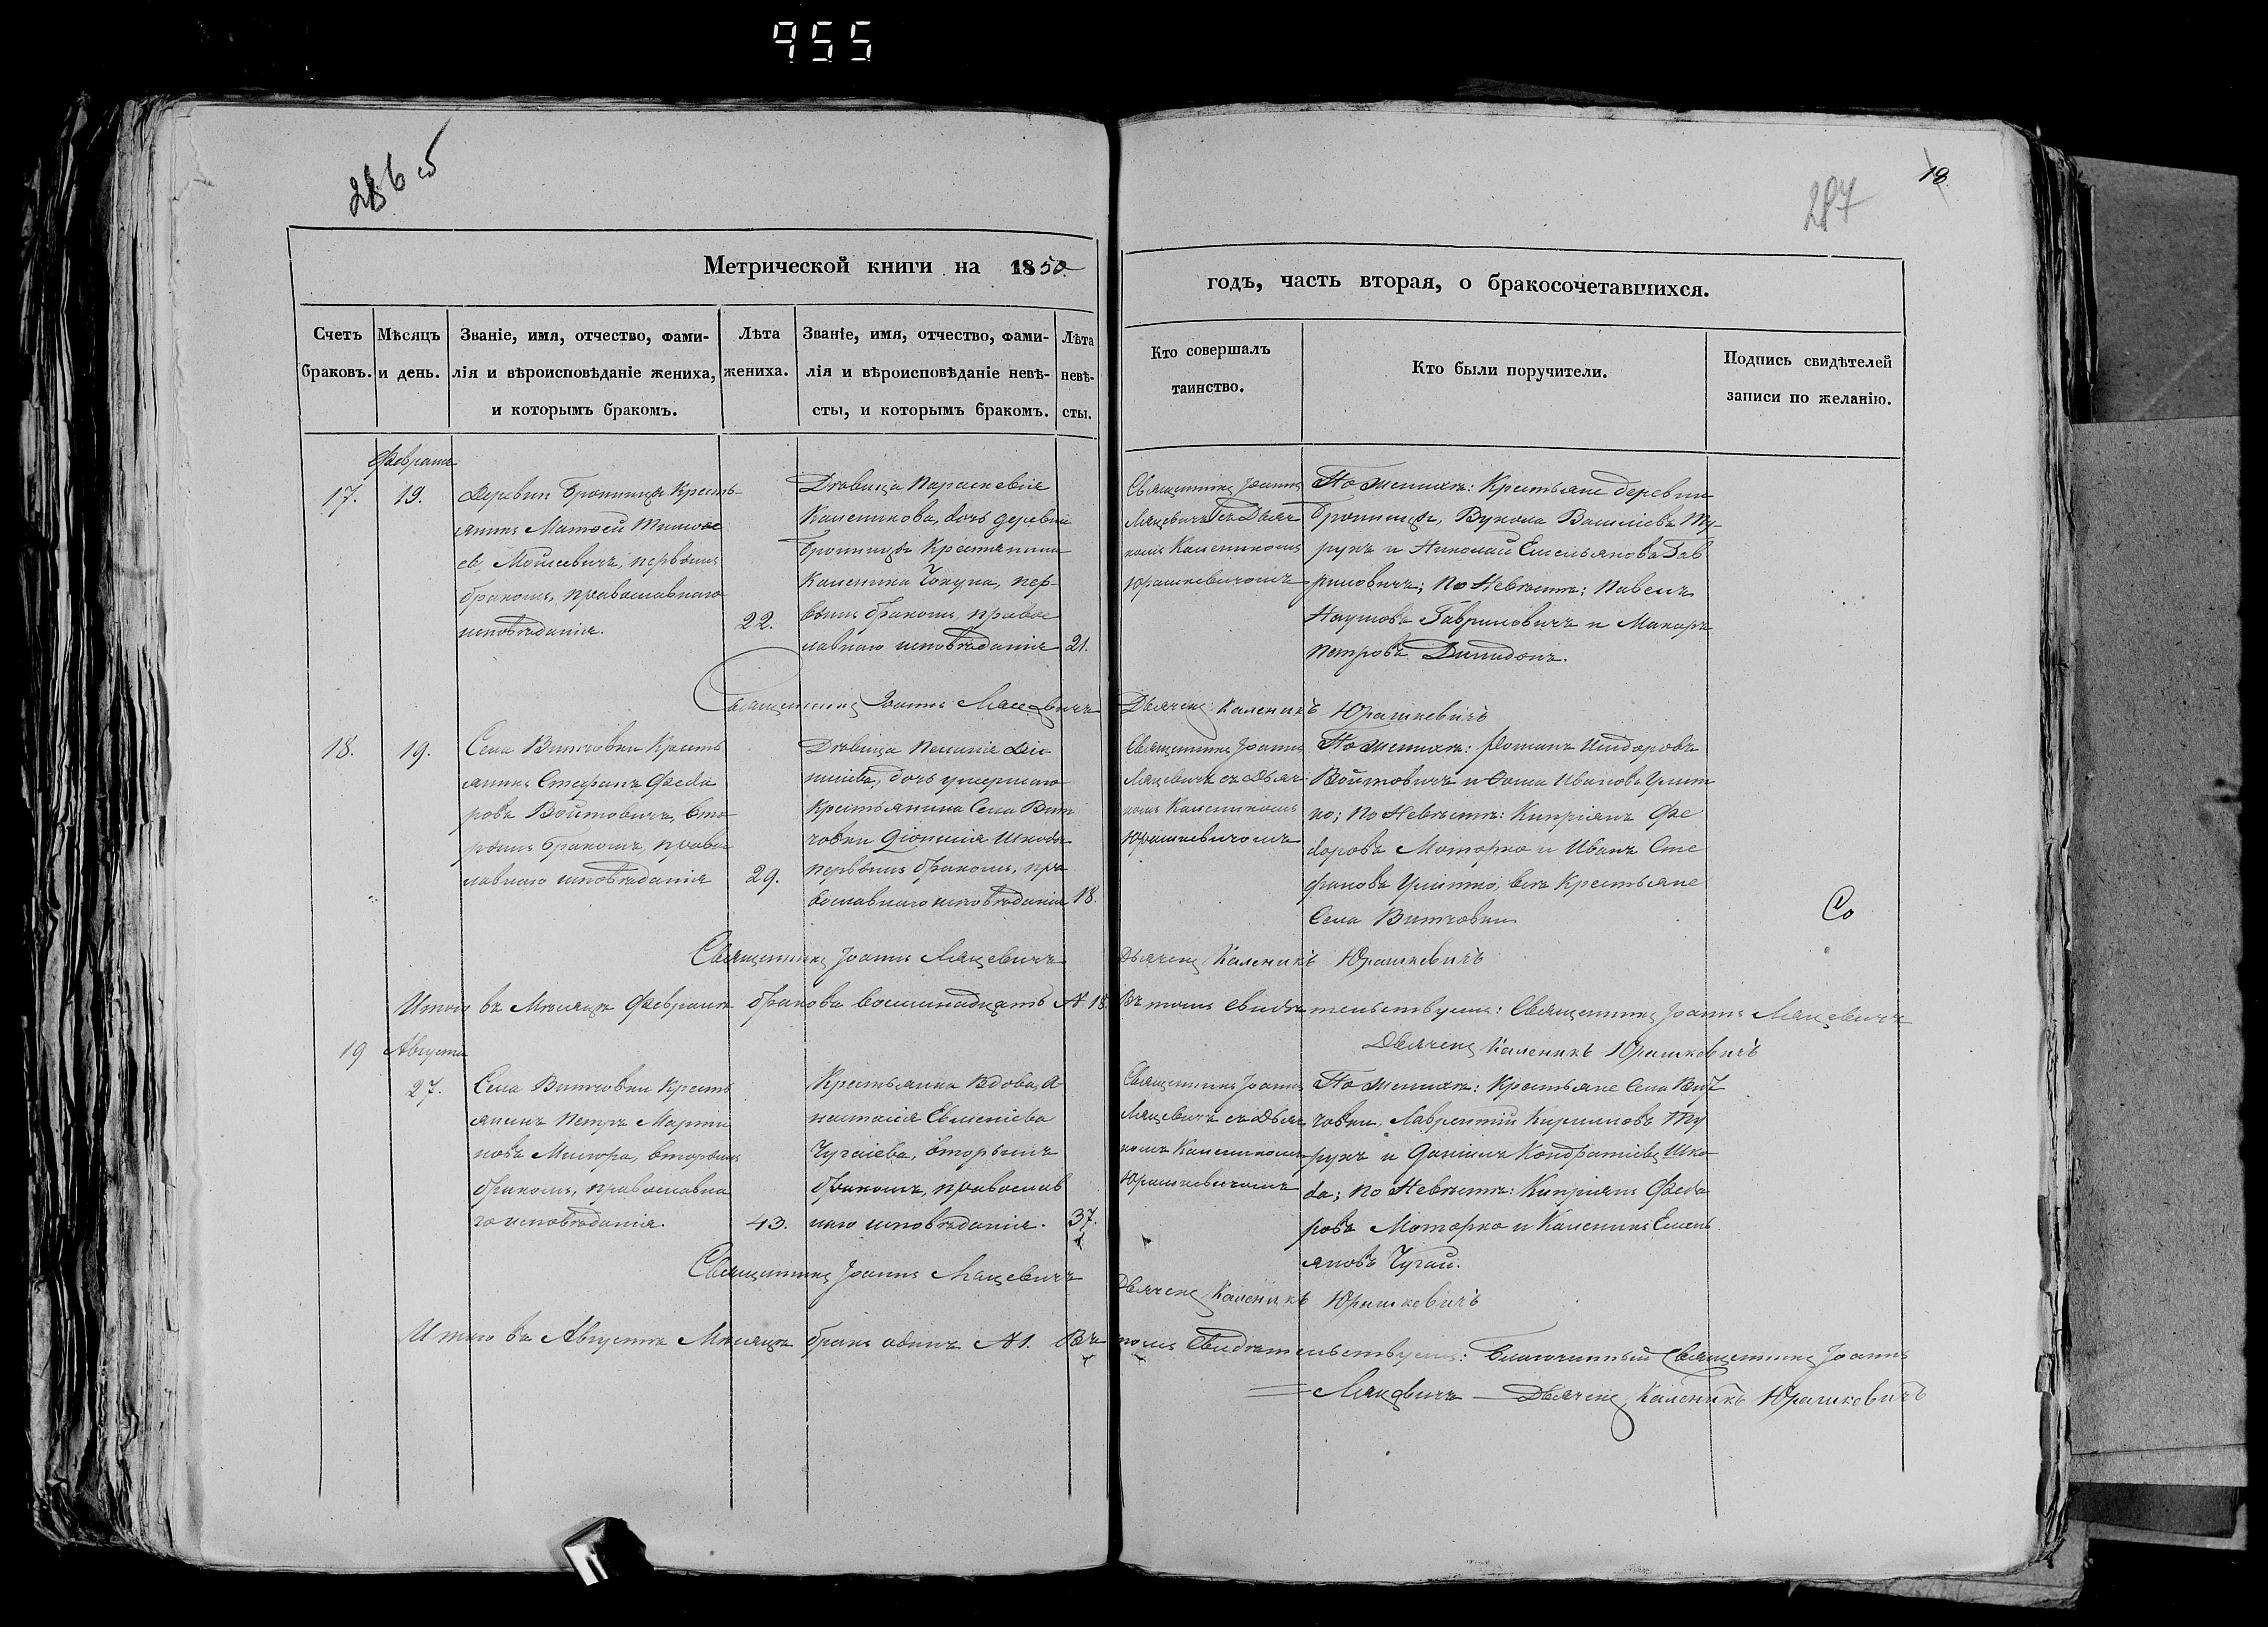 955
286 об
18
287
Метрической книги на 1850
годъ, часть вторая, о бракосочетавшихся.
Счетъ браковъ.
Мѣсяцъ и день.
Званіе, имя, отчество, фами-
лія и вѣроисповѣданіе жениха,
и которымъ бракомъ.
Лѣта
жениха.
Званіе, имя, отчество, фами-
лія и вѣроисповѣданіе невѣ-
сты, и которымъ бракомъ.
Лѣта
невѣ-
сты.
Кто совершалъ
таинство.
Кто были поручители.
Подпись свидѣтелей
записи по желанію.
Февраля
17.
19.
Деревни Бронница Кресть-
янинъ Матѳей Тимоѳе
евъ Мойсевичъ, первымъ
бракомъ, православнаго
исповѣданія.
22.
Дѣвица Параскевія
Каленикова, дочь деревни
Бронница Крестьянина
Каленика Чокуна, пер-
вымъ бракомъ, правос
лавнаго исповѣданія
21.
Священникъ Іоаннъ
Мацевичъ съ Дьяч
комъ Каленикомъ
Юрашкевичомъ
По женихѣ: Крестьяне деревни
Бронница, Вукола Василіевъ Ту-
рукъ и Николай Емельяновъ Гав
риловичъ; По Невѣстѣ: Павелъ
Наумовъ Гавриловичъ и Макаръ
Петровъ Димидокъ.
Священникъ Іоаннъ Мацевичъ
Дьячекъ Каленикъ Юрашкевичъ
18.
19.
Села Витчовки Кресть
янинъ Стефанъ Федо
ровъ Войтовичъ, вто
рымъ бракомъ, правос
лавнаго исповѣданія
29.
Дѣвица Меланія Діо
нисіева, дочь умершаго
Крестьянина Села Вит
човки Діонисія Шкода
первымъ бракомъ, пра
вославнаго исповѣданія
18.
Священникъ Іоаннъ
Мацевичъ съ Дьяч
комъ Каленикомъ
Юрашкевичомъ
По женихѣ: Романъ Исидоровъ
Войтовичъ и Ѳома Ивановъ Улит
ко; По Невѣстѣ: Кипріянъ Фе
доровъ Моторко и Иванъ Сте
фановъ Улитко, всѣ Крестьяне
Села Витчовки
Со
Священникъ Іоаннъ Мацевичъ
Дьячекъ Каленикъ Юрашкевичъ
Итого въ Мѣсяцѣ Февралѣ браковъ восемнадцать № 18. Въ томъ свидѣтельствуемъ: Священникъ Іоаннъ Мацевичъ
Дьячекъ Каленикъ Юрашкевичъ
19
Августа
27.
Села Витчовки Кресть
янинъ Петръ Марти
новъ Мисюра, вторымъ
бракомъ, православна
го исповѣданія.
43.
Крестьянка Вдова, А
настасія Евменіева
Чугаіева, вторымъ
бракомъ, православ
наго исповѣданія.
37.
Священникъ Іоаннъ
Мацевичъ съ Дьяч
комъ Каленикомъ
Юрашкевичомъ
По женихѣ: Крестьяне Села Вит
човки, Лаврентій Кириловъ Ту
рукъ и Даніилъ Кондратіевъ Шко
да; По Невѣстѣ: Кипріянъ Федо
ровъ Моторко и Каленикъ Емель
яновъ Чугай.
Священникъ Іоаннъ Мацевичъ
Дьячекъ Каленикъ Юрашкевичъ
Итого въ Августѣ Мѣсяцѣ бракъ одинъ № 1. Въ томъ Свидѣтельствуемъ: Благочинный Священникъ Іоаннъ
Мацевичъ — Дьячекъ Каленикъ Юрашкевичъ